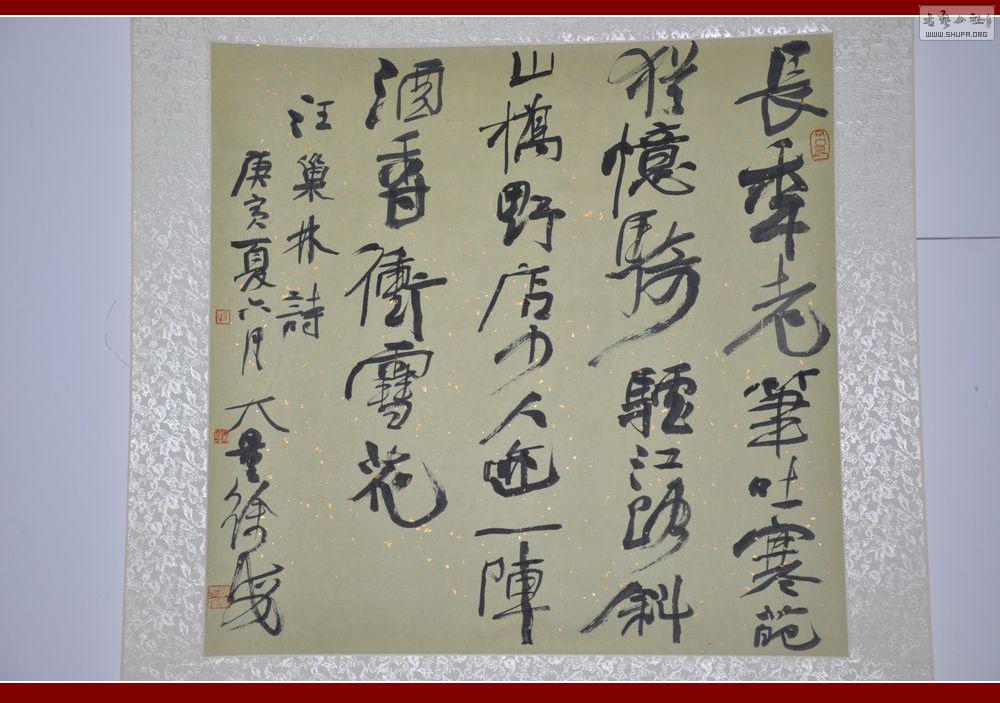 長年老筆吐寒葩
猶憶騎驢江路斜
山橋野店少人迹一陣
酒香衝雪花
汪巢林詩
庚寅夏六月 大量徐
書藝公社
WWW.SHUFA.ORG